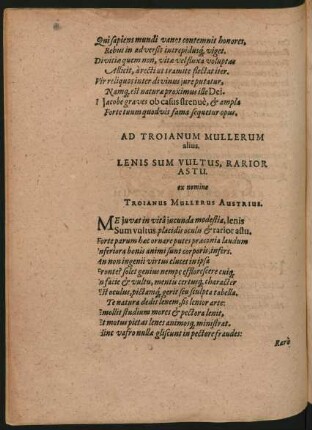 Qui sapiens mundi vanos contemnit honores,
Rebus in adversis intrepidusq; viget.
Divitiæ quem non, vitæ vel luxa voluptas
Allicit, à recti ut tramite flectat iter.
Vir reliquos inter divinus jure putatur,
Namq; est naturæ proximus ille Dei.
I Jacobe graves ob casus strenuè, & ampla
Fortè tuum quodvis fama sequetur opus.
AD TROIANUM MULLERUM
alius.
LENIS SUM VULTUS, RARIOR
ASTU.
ex nomine
TROIANUS MULLERUS AUSTRIUS.
ME juvat in vitâ jucunda modestia, lenis
Sum vultus placidis oculis & rarior astu,
Forte parum hæc ornare putes præconia laudum
Inferiora bonis animi sunt corporis; infers.
An non ingenii virtus elucet in ipsâ
Fronte? soles genius nempe efflorescere cuiq;
In facie & vultu, mentis certusq; character
Est oculus, pictamq; gerit seu sculpta tabella.
Te natura dedit lenem, sis lenior arte:
Emollit studium mores & pectora lenit,
Et motus pietas lenes animosq; ministrat.
Hinc vafro nullæ gliscunt in pectore fraudes:
Rarò